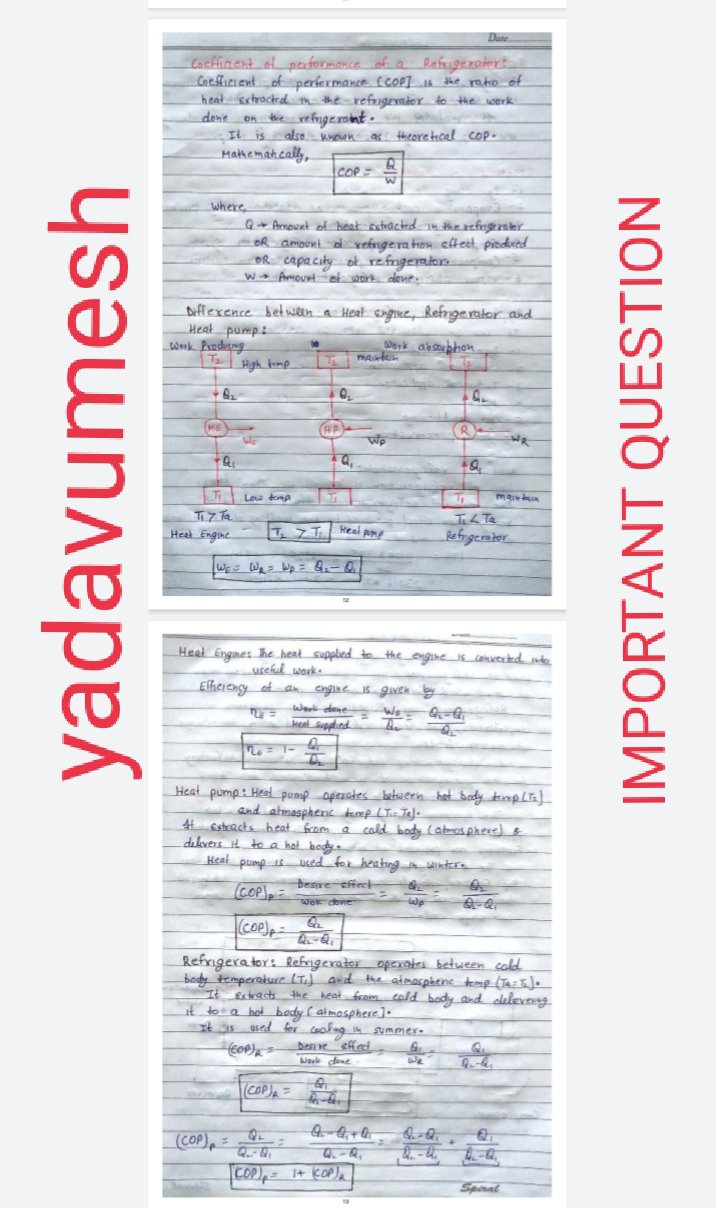 yadavumesh
IMPORTANT QUESTION
Date
Coefficient of performance of a Refrigerator:
Coefficient of performance [COP] is the ratio of
heat extracted in the refrigerator to the work
done on the refrigerant.
It is also known as theoretical COP.
Mathematically,
COP = Q/W
Where,
Q → Amount of heat extracted in the refrigerator
OR amount of refrigeration effect produced
OR capacity of refrigerator.
W → Amount of work done.
Difference between a Heat engine, Refrigerator and
Heat pump:
Work Producing
Work absorbtion
T₂ High temp
T₂ maintain
T₂
Q₂
Q₂
Q₂
HE
WE
HP
WP
R
WR
Q₁
Q₁
Q₁
T₁ Low temp
T₁
T₁ maintain
T₁ > Ta
T₁ < Ta
Heat Engine
T₂ > T₁ Heat pump
Refrigerator
WE = WR = WP = Q₂ - Q₁
12
Heat Engine: The heat supplied to the engine is converted into
useful work.
Efficiency of an engine is given by
ηE = Work done / Heat supplied = WE/Q₂ = Q₂-Q₁/Q₂
ηE = 1 - Q₁/Q₂
Heat pump: Heat pump operates between hot body temp (T₂)
and atmospheric temp (T₁=Ta).
It extracts heat from a cold body (atmosphere) &
delivers it to a hot body.
Heat pump is used for heating in winter.
(COP)P = Desire effect / Wok done = Q₂/WP = Q₂/Q₂-Q₁
(COP)P = Q₂/Q₂-Q₁
Refrigerator: Refrigerator operates between cold
body temperature (T₁) and the atmospheric temp (Ta=T₂).
It extracts the heat from cold body and delevering
it to a hot body [atmosphere].
It is used for cooling in summer.
(COP)R = Desire effect / Work done = Q₁/WR = Q₁/Q₂-Q₁
(COP)R = Q₁/Q₂-Q₁
(COP)P = Q₂/Q₂-Q₁ = Q₂-Q₁+Q₁/Q₂-Q₁ = Q₂-Q₁/Q₂-Q₁ + Q₁/Q₂-Q₁
(COP)P = 1+ (COP)R
13